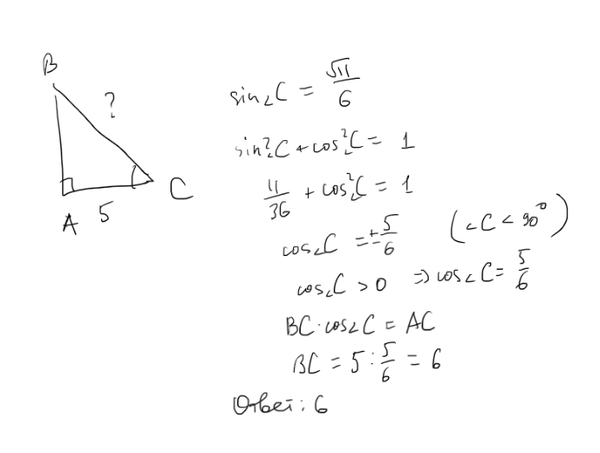 B
?
A
5
C
sin∠C = √11/6
sin²∠C + cos²∠C = 1
11/36 + cos²∠C = 1
cos∠C = ±5/6 (∠C < 90°)
cos∠C > 0 ⇒ cos∠C = 5/6
BC·cos∠C = AC
BC = 5 : 5/6 = 6
Ответ: 6